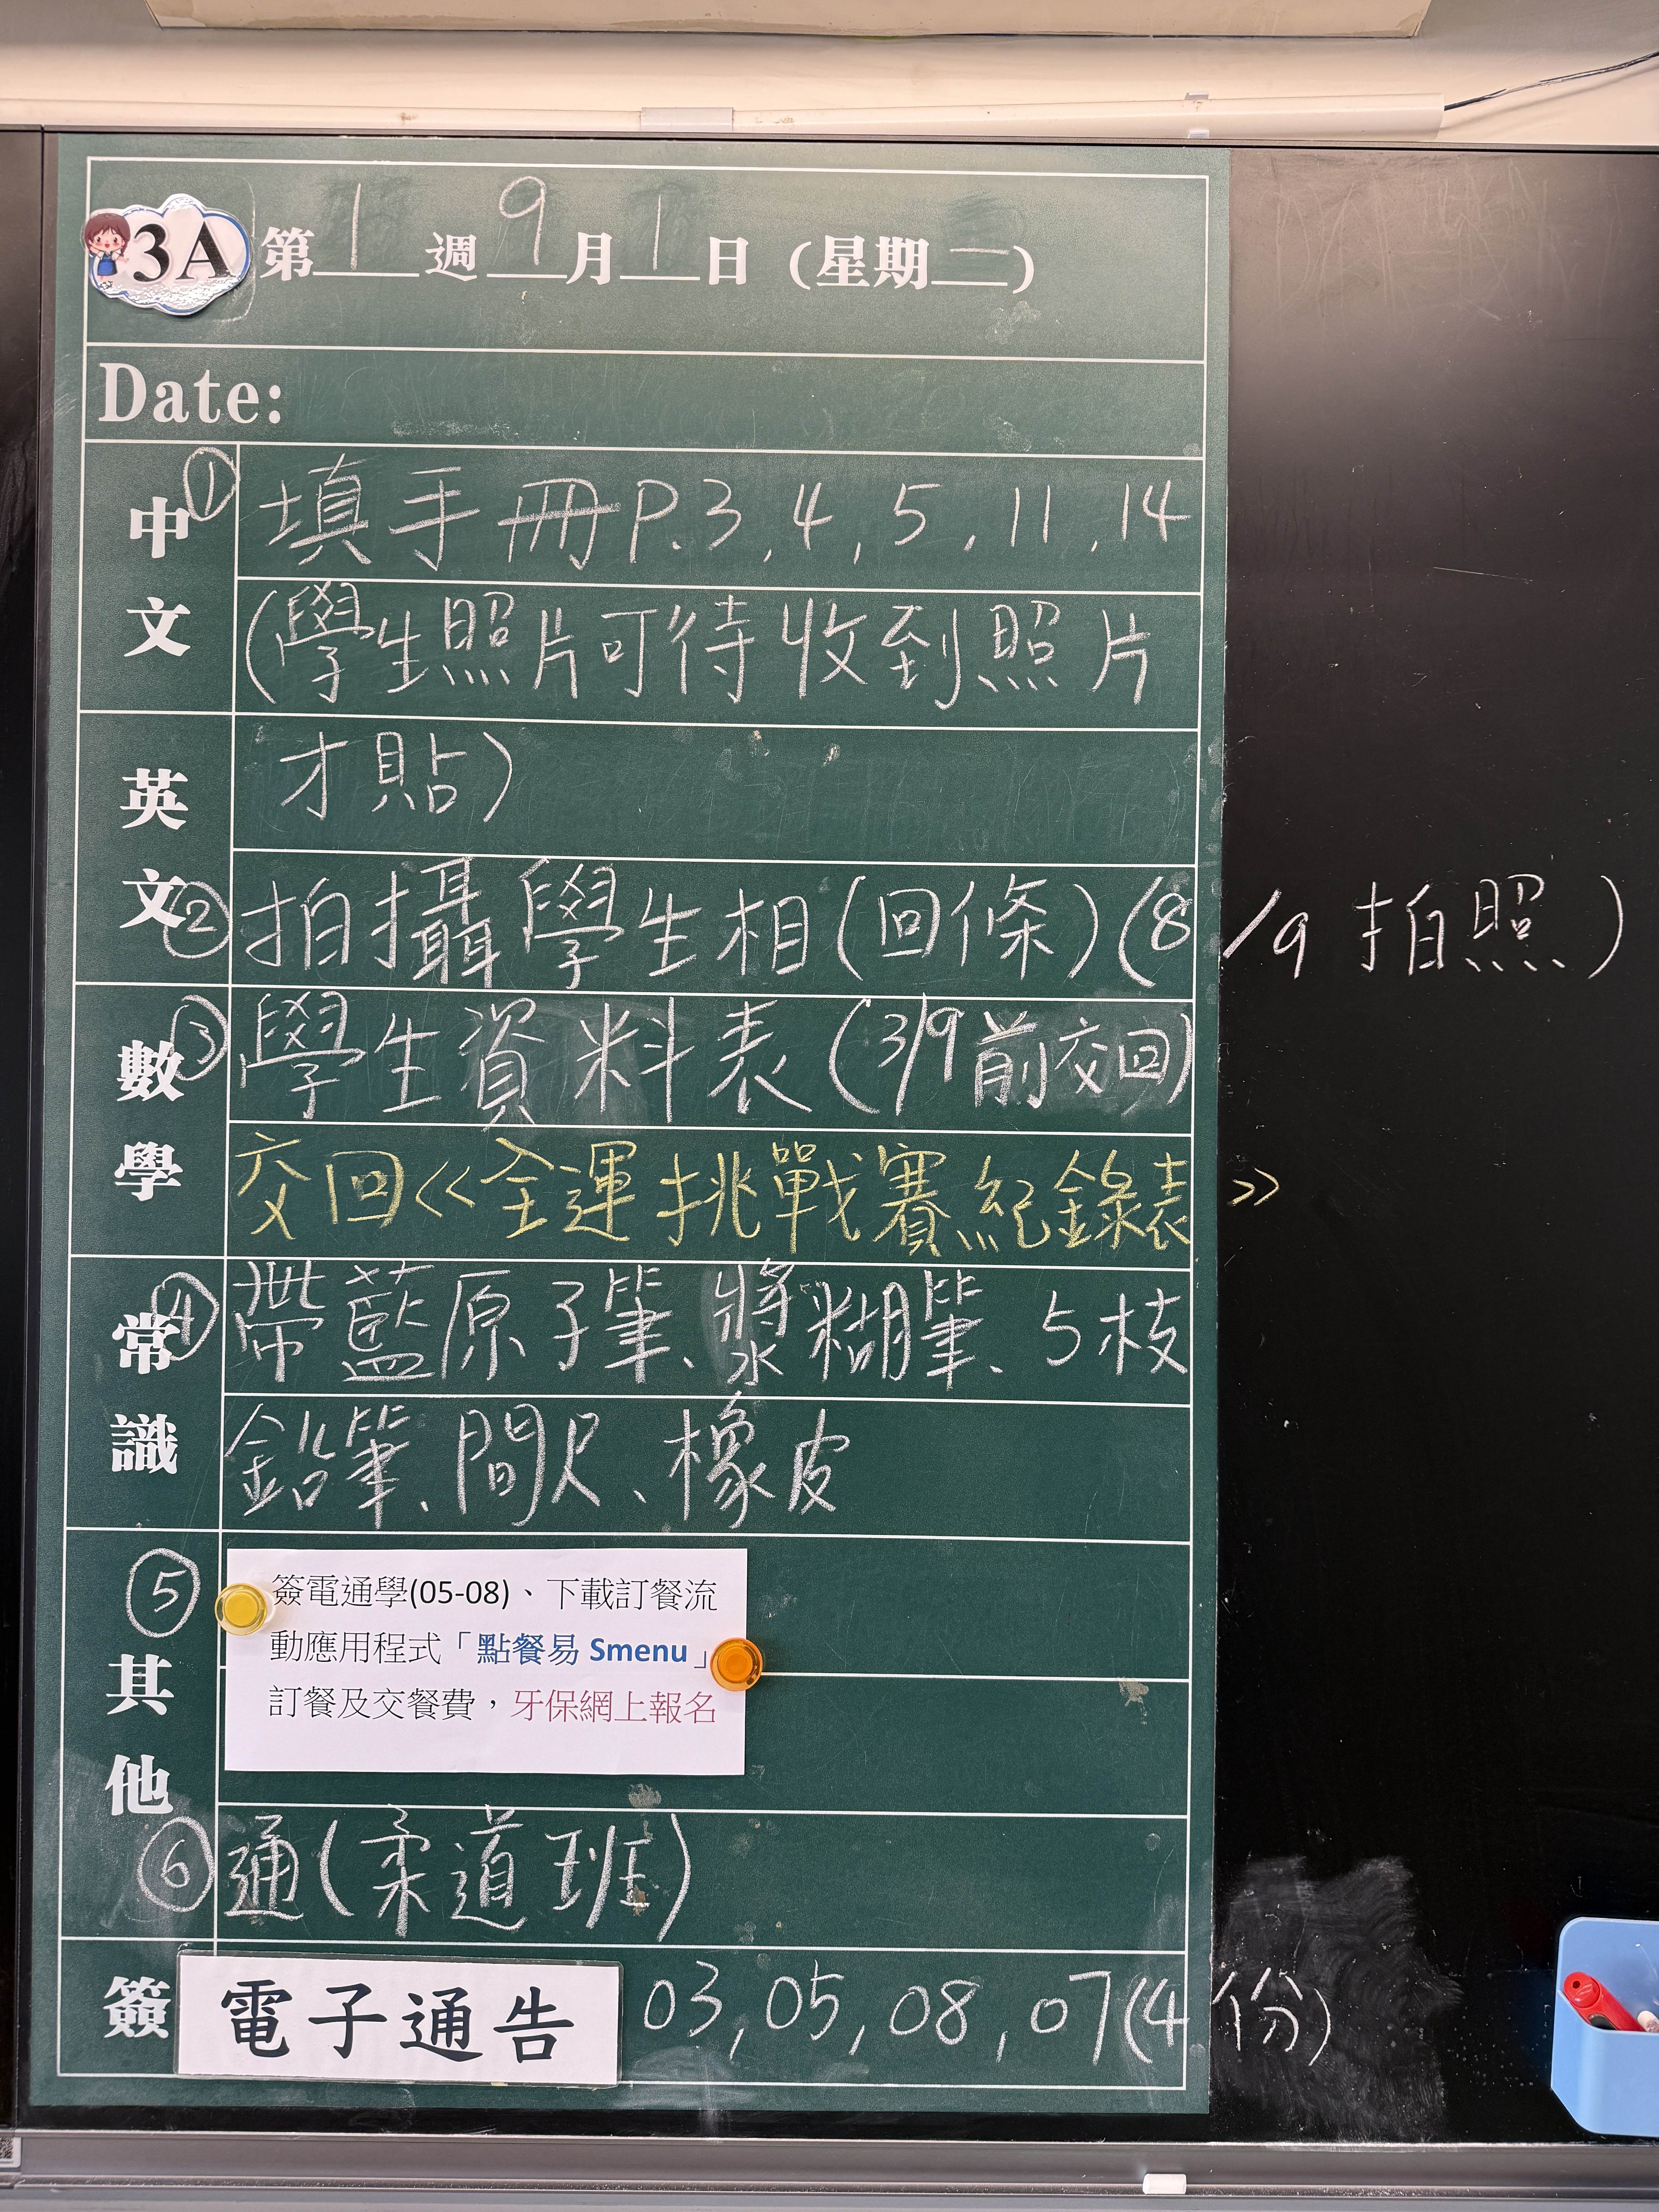 3A 第1週9月1日(星期一)
Date:
中文
① 填手冊P.3,4,5,11,14
(學生照片可待收到照片
英文
才貼)
② 拍攝學生相(回條)(8/9拍照)
數學
③ 學生資料表(3/9前交回)
交回<<全運挑戰賽紀錄表>>
常識
④ 帶藍原子筆、漿糊筆、5枝
鉛筆、間尺、橡皮
其他
⑤ 簽電通學(05-08)、下載訂餐流
動應用程式「點餐易 Smenu」
訂餐及交餐費,牙保網上報名
⑥ 通(柔道班)
簽 電子通告 03,05,08,07(4份)